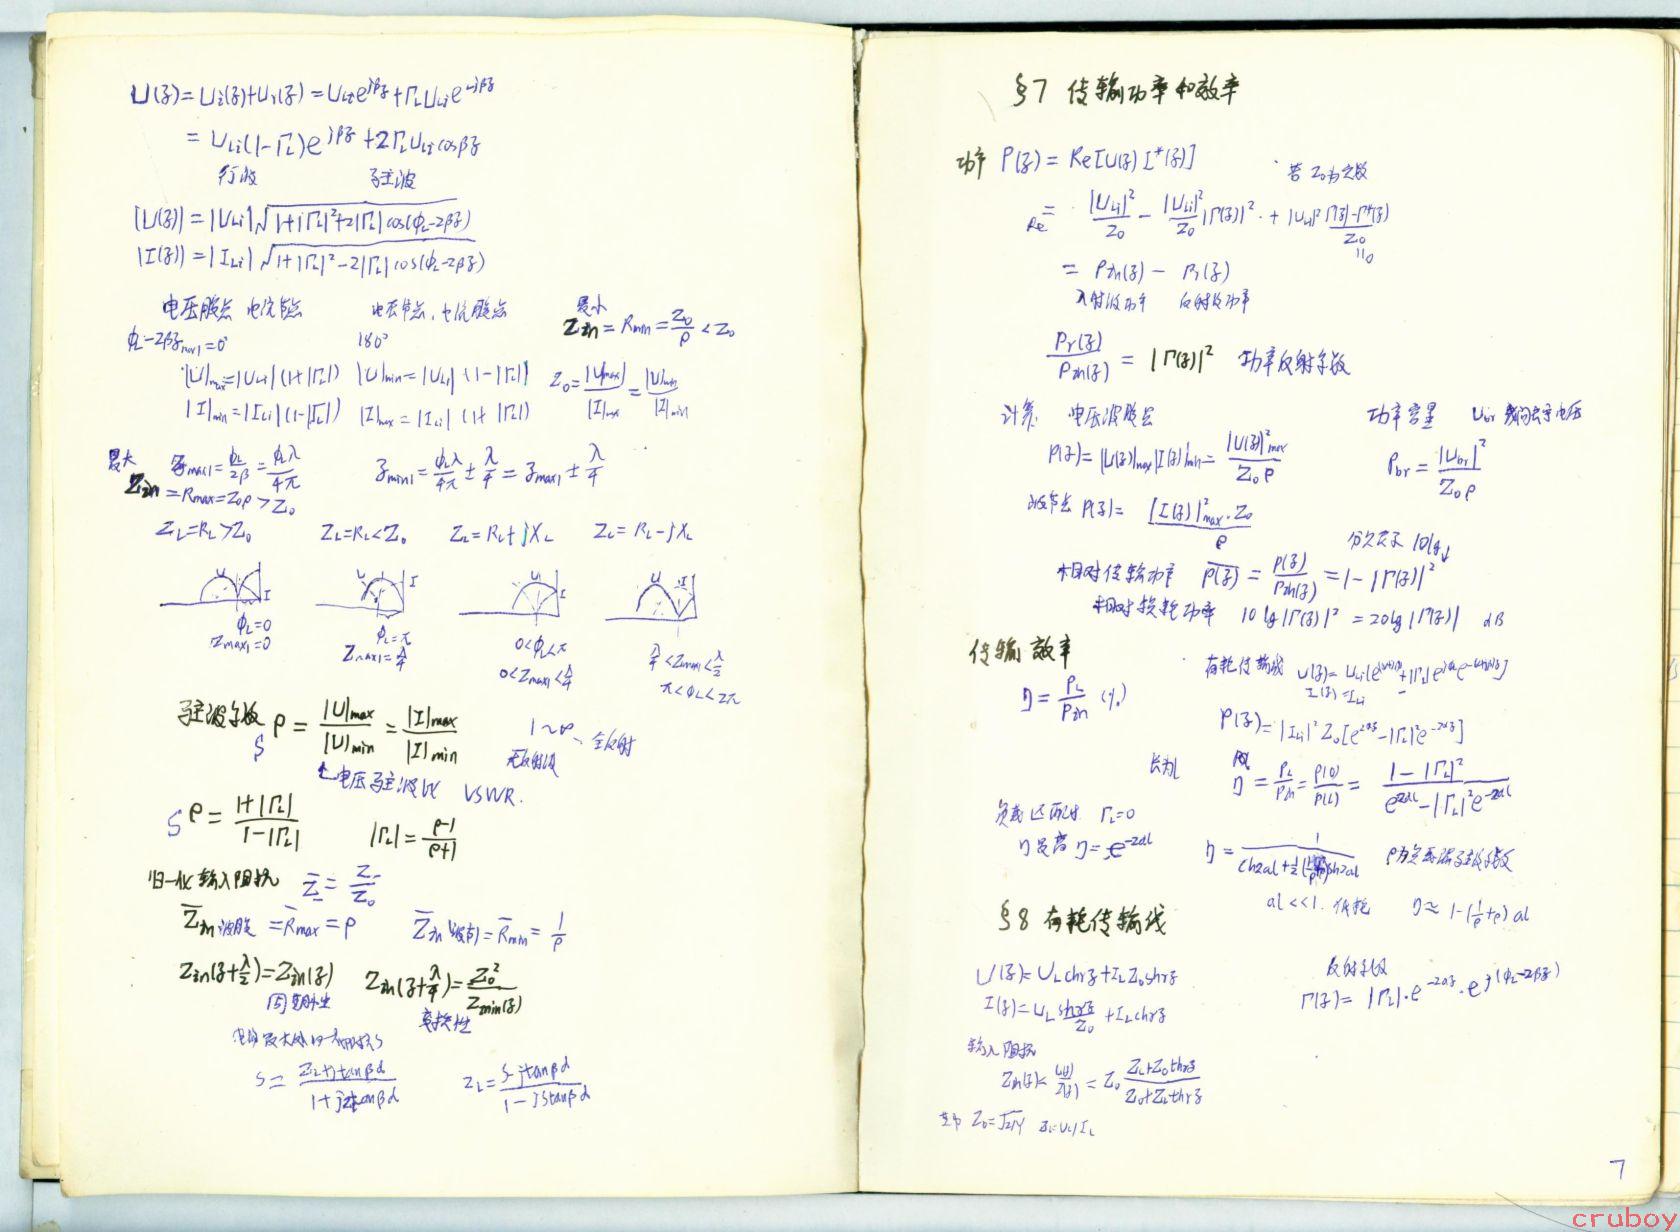 U(z)=Ui(z)+Ur(z)=U_Li e^{jβz}+Γ_L U_Li e^{-jβz}
=U_Li(1-Γ_L)e^{jβz}+2Γ_L U_Li cosβz
行波 驻波
|U(z)|=|U_Li|√(1+|Γ_L|²+2|Γ_L|cos(φ_L-2βz))
|I(z)|=|I_Li|√(1+|Γ_L|²-2|Γ_L|cos(φ_L-2βz))
电压腹点 电流节点 电压节点、电流腹点 最小
Zin=Rmin=Z₀/ρ<Z₀
φ_L-2βz_max1=0° 180°
|U|max=|U_Li|(1+|Γ_L|) |U|min=|U_Li|(1-|Γ_L|) Z₀=|U|max/|I|max=|U|min/|I|min
|I|min=|I_Li|(1-|Γ_L|) |I|max=|I_Li|(1+|Γ_L|)
最大 z_max1=φ_L/2β=φ_Lλ/4π z_min1=φ_Lλ/4π±λ/4=z_max1±λ/4
Zin=Rmax=Z₀ρ>Z₀
Z_L=R_L>Z₀ Z_L=R_L<Z₀ Z_L=R_L+jX_L Z_L=R_L-jX_L
U I U I U I U I
φ_L=0 φ_L=π 0<φ_L<π λ/4<Zmax1<λ/2
Zmax1=0 Zmax1=λ/4 0<Zmax1<λ/4 π<φ_L<2π
驻波系数 ρ=|U|max/|U|min=|I|max/|I|min 1~∞、全反射
S 无反射波
↑电压驻波比 VSWR.
S ρ=(1+|Γ_L|)/(1-|Γ_L|) |Γ_L|=(ρ-1)/(ρ+1)
归一化输入阻抗 Z̄=Z/Z₀
Z̄in波腹=R̄max=ρ Z̄in波节=R̄min=1/ρ
Zin(z+λ/2)=Zin(z) Zin(z+λ/4)=Z₀²/Zmin(z)
周期性 变换性
S=(Z_L+jtanβd)/(1+jZ_Ltanβd) Z_L=(S-jtanβd)/(1-jStanβd)
§7 传输功率和效率
功率 P(z)=Re[U(z)I*(z)] 若Z₀为实数
=Re |U_Li|²/Z₀-|U_Li|²/Z₀|Γ(z)|²+|U_Li|²(Γ(z)-Γ*(z))/Z₀
=Pin(z)-Pr(z) ||0
入射波功率 反射波功率
Pr(z)/Pin(z)=|Γ(z)|² 功率反射系数
计算: 电压波腹点 功率容量 Ubr 击穿电压
P(z)=|U(z)|max|I(z)|min=|U(z)|²max/Z₀ρ Pbr=|Ubr|²/Z₀ρ
波节点 P(z)=|I(z)|²max·Z₀/ρ
分贝表示 10lg↓
相对传输功率 P̄(z)=P(z)/Pin(z)=1-|Γ(z)|²
相对损耗功率 10lg|Γ(z)|²=20lg|Γ(z)| dB
传输效率
η=P_L/Pin(%) 有耗传输线
I(z)=I_Li
P(z)=|I_Li|²Z₀[e^{2αz}-|Γ_L|²e^{-2αz}]
长为l 则 η=P_L/Pin=P(0)/P(L)=(1-|Γ_L|²)/(e^{2αl}-|Γ_L|²e^{-2αl})
负载匹配时 Γ_L=0
η最高 η=e^{-2αl} ρ为负载端驻波系数
αl<<1. 低耗 η≈1-(1/ρ+ρ)αl
§8 有耗传输线
U(z)=U_Lchγz+I_LZ₀shγz 反射系数
I(z)=U_L shγz/Z₀+I_Lchγz Γ(z)=|Γ_L|·e^{-2αz}·e^{j(φ_L-2βz)}
输入阻抗
Zin(z)=U(z)/I(z)=Z₀(Z_L+Z₀thγz)/(Z₀+Z_Lthγz)
其中 Z₀=√(Z/Y) Z_L=U_L/I_L
7
cruboy